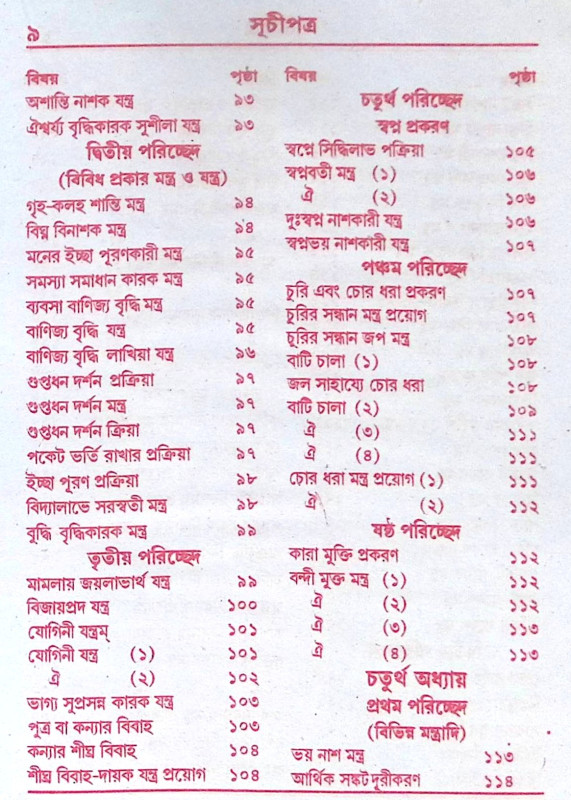 ৯ সূচীপত্র
বিষয় পৃষ্ঠা
অশান্তি নাশক যন্ত্র ৯৩
ঐশ্বর্য্য বৃদ্ধিকারক সুশীলা যন্ত্র ৯৩
দ্বিতীয় পরিচ্ছেদ
(বিবিধ প্রকার মন্ত্র ও যন্ত্র)
গৃহ-কলহ শান্তি মন্ত্র ৯৪
বিঘ্ন বিনাশক মন্ত্র ৯৪
মনের ইচ্ছা পূরণকারী মন্ত্র ৯৫
সমস্যা সমাধান কারক মন্ত্র ৯৫
ব্যবসা বাণিজ্য বৃদ্ধি মন্ত্র ৯৫
বাণিজ্য বৃদ্ধি যন্ত্র ৯৫
বাণিজ্য বৃদ্ধি লাখিয়া যন্ত্র ৯৬
গুপ্তধন দর্শন প্রক্রিয়া ৯৭
গুপ্তধন দর্শন মন্ত্র ৯৭
গুপ্তধন দর্শন ক্রিয়া ৯৭
পকেট ভর্তি রাখার প্রক্রিয়া ৯৭
ইচ্ছা পূরণ প্রক্রিয়া ৯৮
বিদ্যালাভে সরস্বতী মন্ত্র ৯৮
বুদ্ধি বৃদ্ধিকারক মন্ত্র ৯৯
তৃতীয় পরিচ্ছেদ
মামলায় জয়লাভার্থ যন্ত্র ৯৯
বিজায়প্রদ যন্ত্র ১০০
যোগিনী যন্ত্রম্ ১০১
যোগিনী যন্ত্র (১) ১০১
ঐ (২) ১০২
ভাগ্য সুপ্রসন্ন কারক যন্ত্র ১০৩
পুত্র বা কন্যার বিবাহ ১০৩
কন্যার শীঘ্র বিবাহ ১০৪
শীঘ্র বিবাহ-দায়ক যন্ত্র প্রয়োগ ১০৪
বিষয় পৃষ্ঠা
চতুর্থ পরিচ্ছেদ
স্বপ্ন প্রকরণ
স্বপ্নে সিদ্ধিলাভ পক্রিয়া ১০৫
স্বপ্নবতী মন্ত্র (১) ১০৬
ঐ (২) ১০৬
দুঃস্বপ্ন নাশকারী যন্ত্র ১০৬
স্বপ্নভয় নাশকারী যন্ত্র ১০৭
পঞ্চম পরিচ্ছেদ
চুরি এবং চোর ধরা প্রকরণ ১০৭
চুরির সন্ধান মন্ত্র প্রয়োগ ১০৭
চুরির সন্ধান জপ মন্ত্র ১০৮
বাটি চালা (১) ১০৮
জল সাহায্যে চোর ধরা ১০৮
বাটি চালা (২) ১০৯
ঐ (৩) ১১১
ঐ (৪) ১১১
চোর ধরা মন্ত্র প্রয়োগ (১) ১১১
ঐ (২) ১১২
ষষ্ঠ পরিচ্ছেদ
কারা মুক্তি প্রকরণ ১১২
বন্দী মুক্ত মন্ত্র (১) ১১২
ঐ (২) ১১২
ঐ (৩) ১১৩
ঐ (৪) ১১৩
চতুর্থ অধ্যায়
প্রথম পরিচ্ছেদ
(বিভিন্ন মন্ত্রাদি)
ভয় নাশ মন্ত্র ১১৩
আর্থিক সঙ্কট দূরীকরণ ১১৪